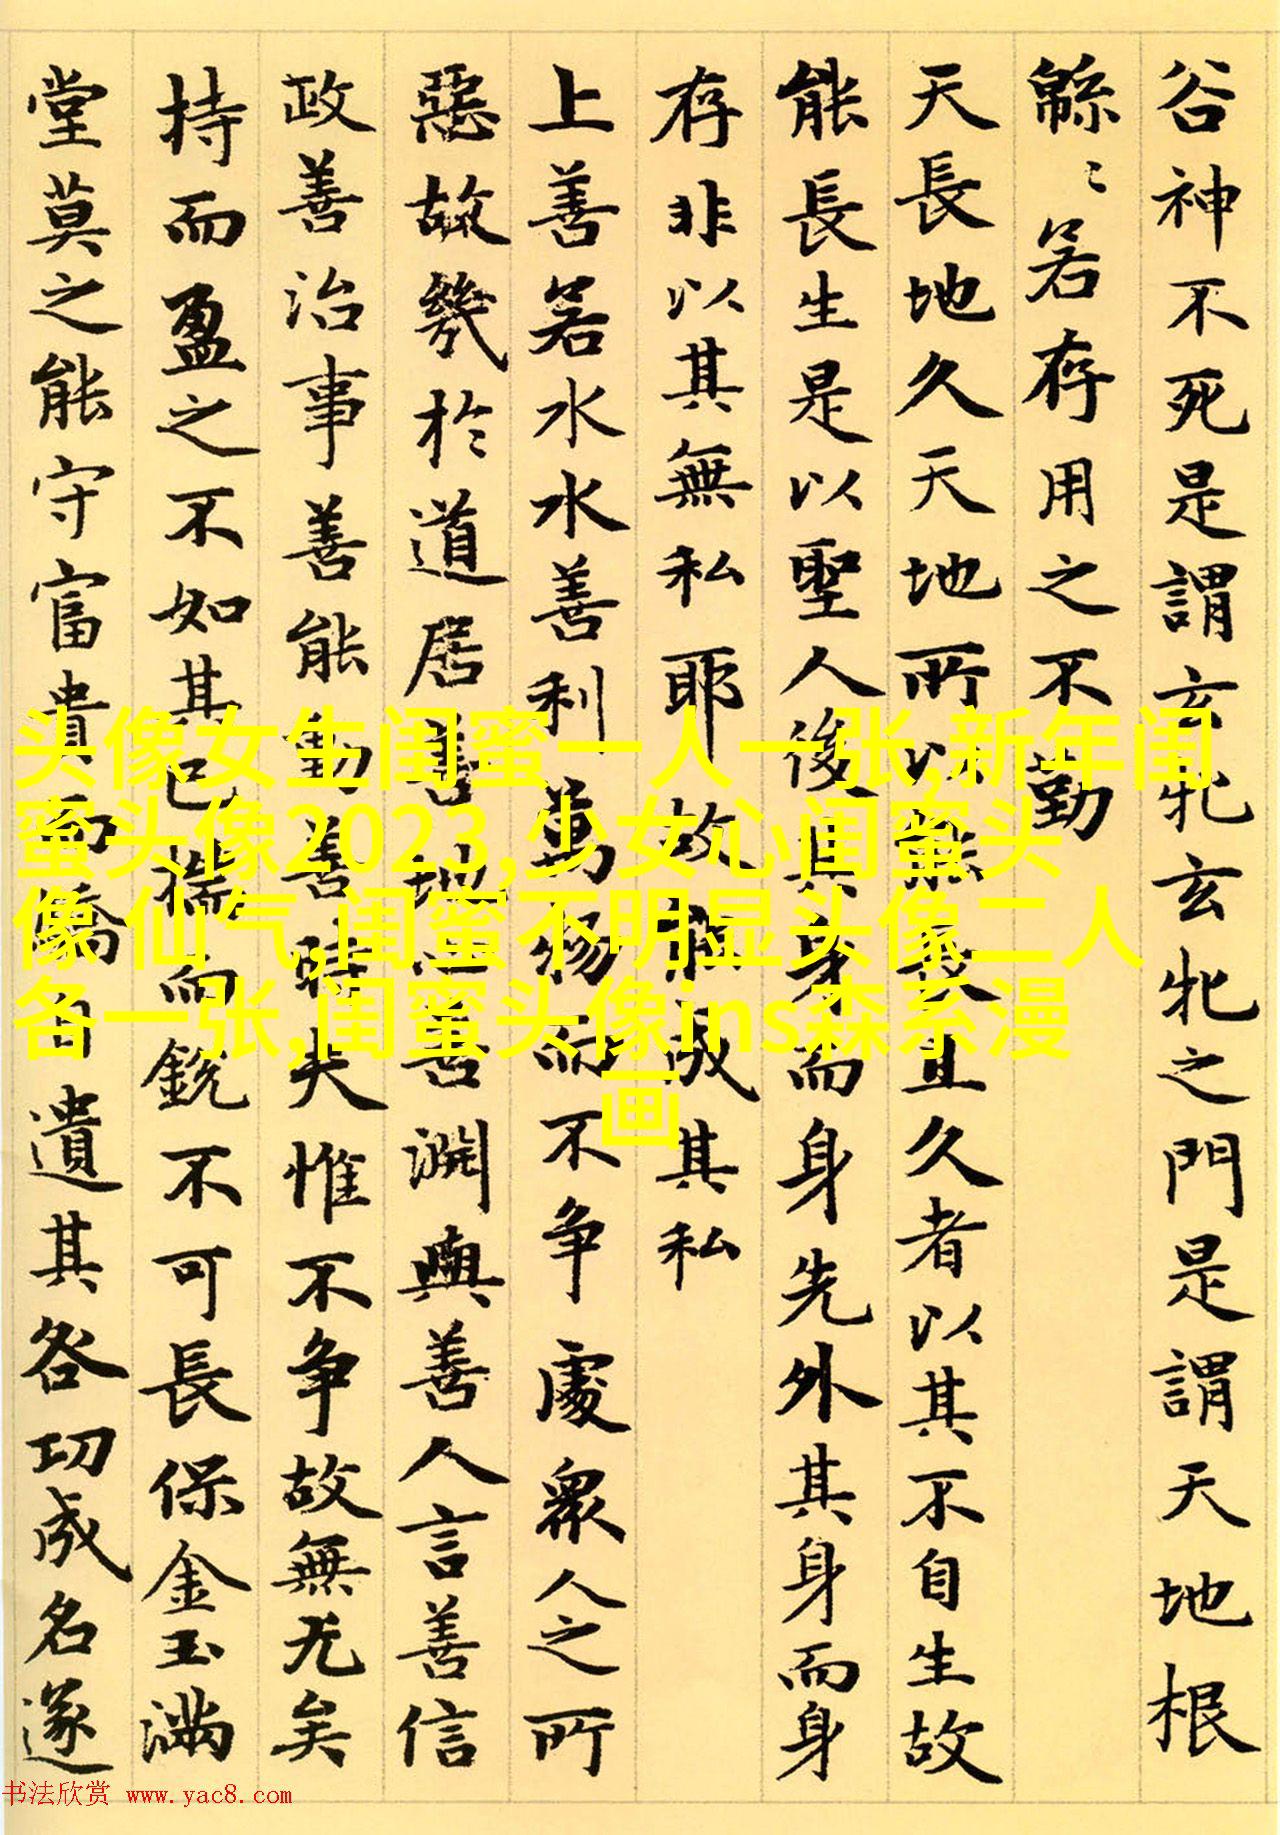 谷神不死是謂玄牝玄牝之門是謂天地根
緜〻若存用之不勤
天長地久天地所以能長且久者以其不自生故
能長生是以聖人後其身而身先外其身而身
存非以其無私耶故能成其私
上善若水水善利萬物而不争處衆人之所
惡故幾於道居善地心善淵與善人言善信
政善治事善能動善時夫惟不争故無尤矣
持而盈之不如其已揣而銳不可長保金玉滿
堂莫之能守富貴而驕自遺其咎功成名遂
头像女生闺蜜一人一张,新年闺
蜜头像2023,少女心闺蜜头
像 仙气,闺蜜不明显头像二人
各一张,闺蜜头像ins森系漫
画
书法欣赏 www.yac8.com